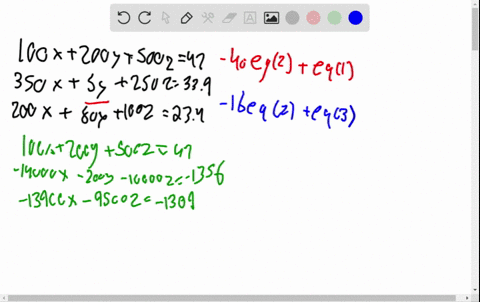 100x+200y+500z=47
350x+5y+250z=33.9
200x+80x+100z=23.4
-40eq(2)+eq(1)
-16eq(2)+eq(3)
100x+200y+500z=47
-14000x-200y-10000z=-1356
-13900x-9500z=-1309